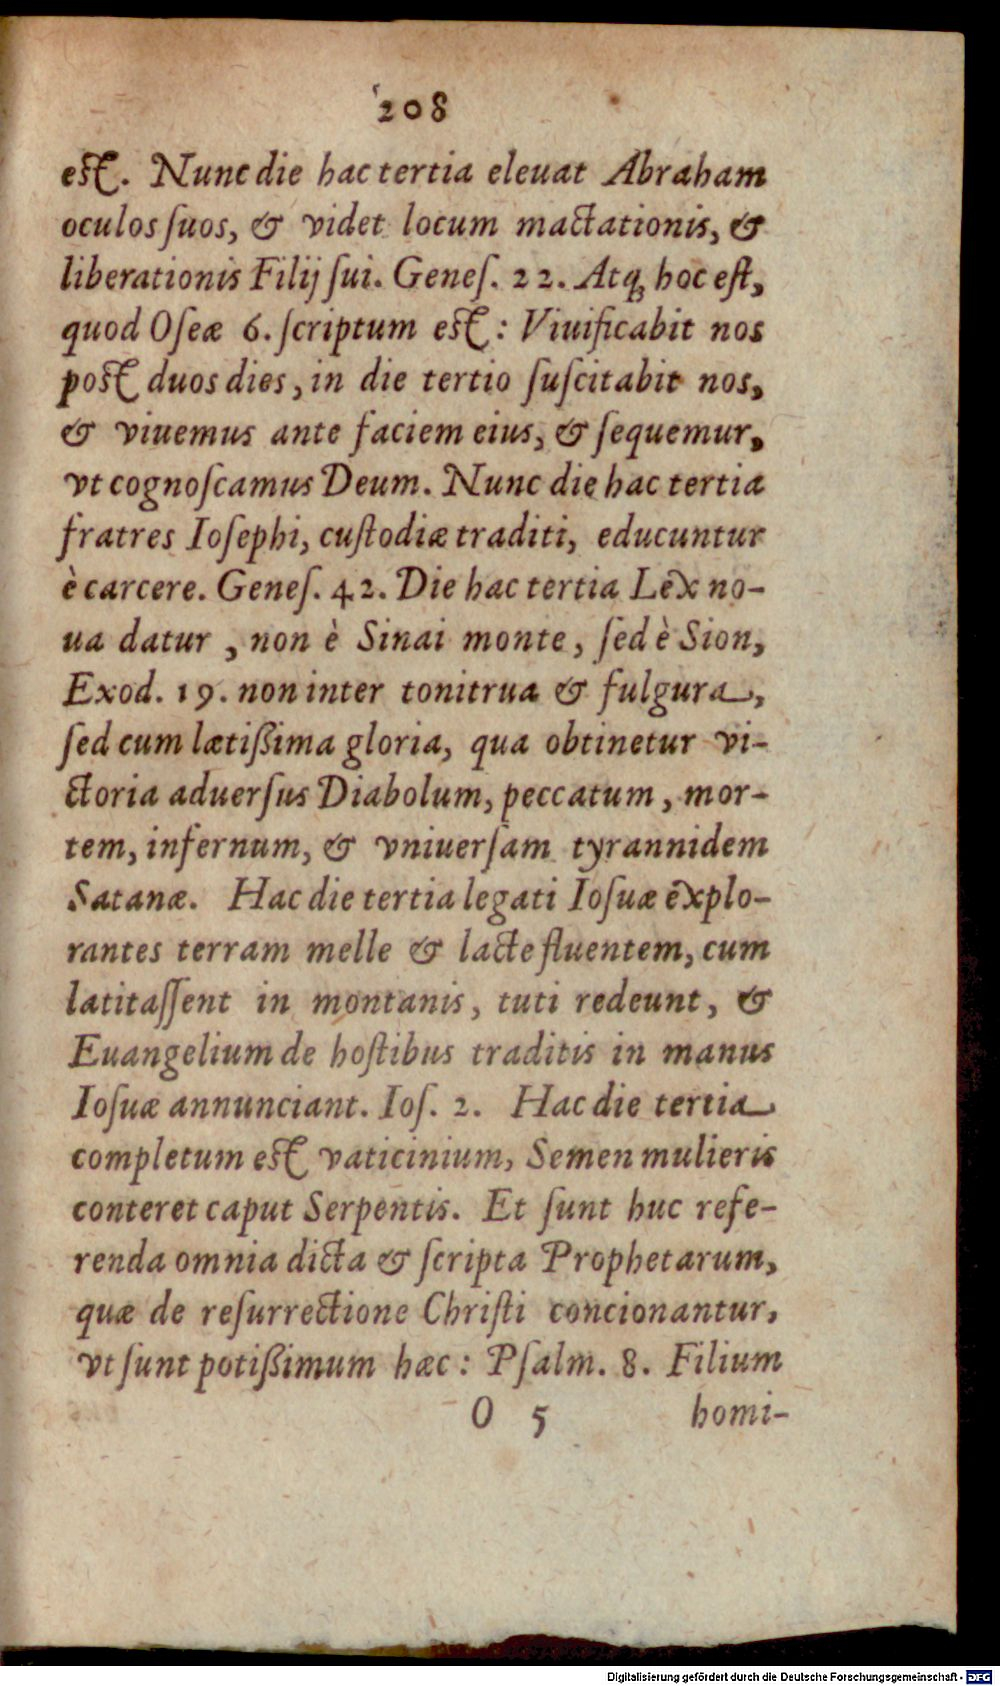 208
est. Nunc die hac tertia eleuat Abraham
oculos ſuos, & videt locum mactationis, &
liberationis Filij ſui. Geneſ. 22. Atq; hoc eſt,
quod Oſeæ 6. ſcriptum est: Viuificabit nos
post duos dies, in die tertio ſuſcitabit nos,
& viuemus ante faciem eius, & ſequemur,
vt cognoſcamus Deum. Nunc die hac tertia
fratres Ioſephi, cuſtodiæ traditi, educuntur
è carcere. Geneſ. 42. Die hac tertia Lex no-
ua datur, non è Sinai monte, ſed è Sion,
Exod. 19. non inter tonitrua & fulgura,
ſed cum lætißima gloria, qua obtinetur vi-
ctoria aduerſus Diabolum, peccatum, mor-
tem, infernum, & vniuerſam tyrannidem
Satanæ. Hac die tertia legati Ioſuæ explo-
rantes terram melle & lacte fluentem, cum
latitaſſent in montanis, tuti redeunt, &
Euangelium de hoſtibus traditis in manus
Ioſuæ annunciant. Ioſ. 2. Hac die tertia
completum est vaticinium, Semen mulieris
conteret caput Serpentis. Et ſunt huc refe-
renda omnia dicta & ſcripta Prophetarum,
quæ de reſurrectione Chriſti concionantur,
vt ſunt potißimum hæc: Pſalm. 8. Filium
O 5 homi-
Digitalisierung gefördert durch die Deutsche Forschungsgemeinschaft - DFG